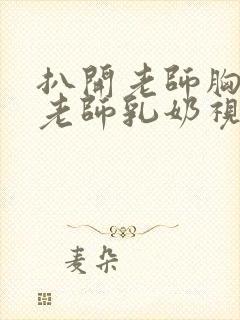 扒開老師胸
老師乳奶視
麦朵